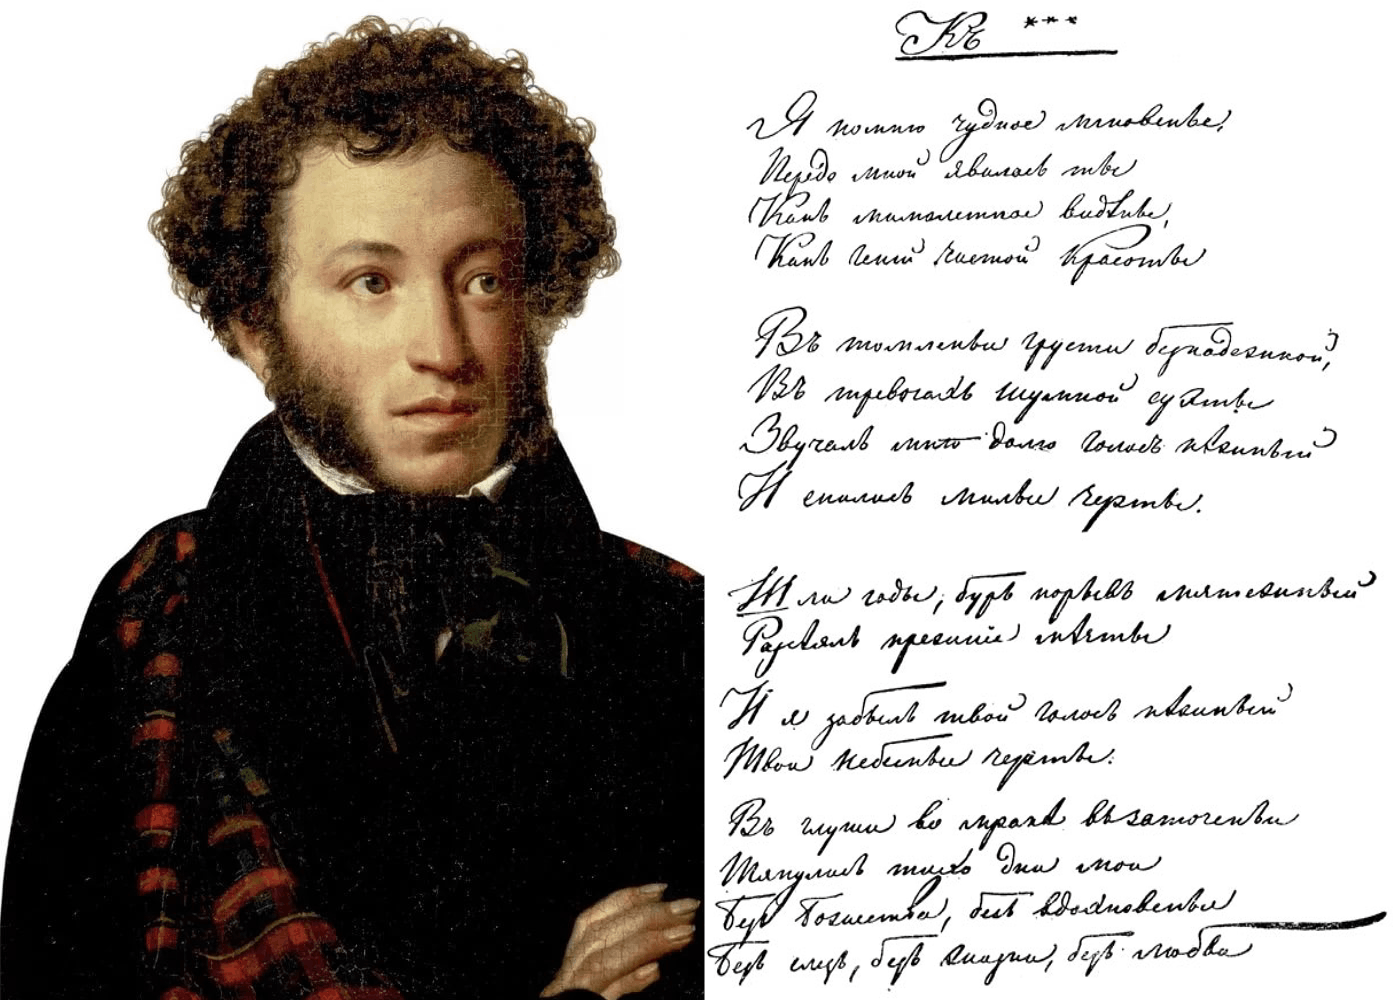 Къ ***
Я помню чудное мгновенье,
Передо мной явилась ты
Какъ мимолетное видѣнье,
Какъ гений чистой красоты
Въ томленьи грусти безнадежной,
Въ тревогахъ шумной суяты
Звучалъ мнѣ долго голосъ нѣжный
И снились милые черты.
Шли годы, бурь порывъ мятежный
Разсѣялъ прежние мѣчты
И я забылъ твой голосъ нѣжный
Твои небесные черты.
Въ глуши во мракѣ въ заточеньи
Тянулись тихо дни мои
Безъ божества, безъ вдохновенья
Безъ слезъ, безъ жизни, безъ любви